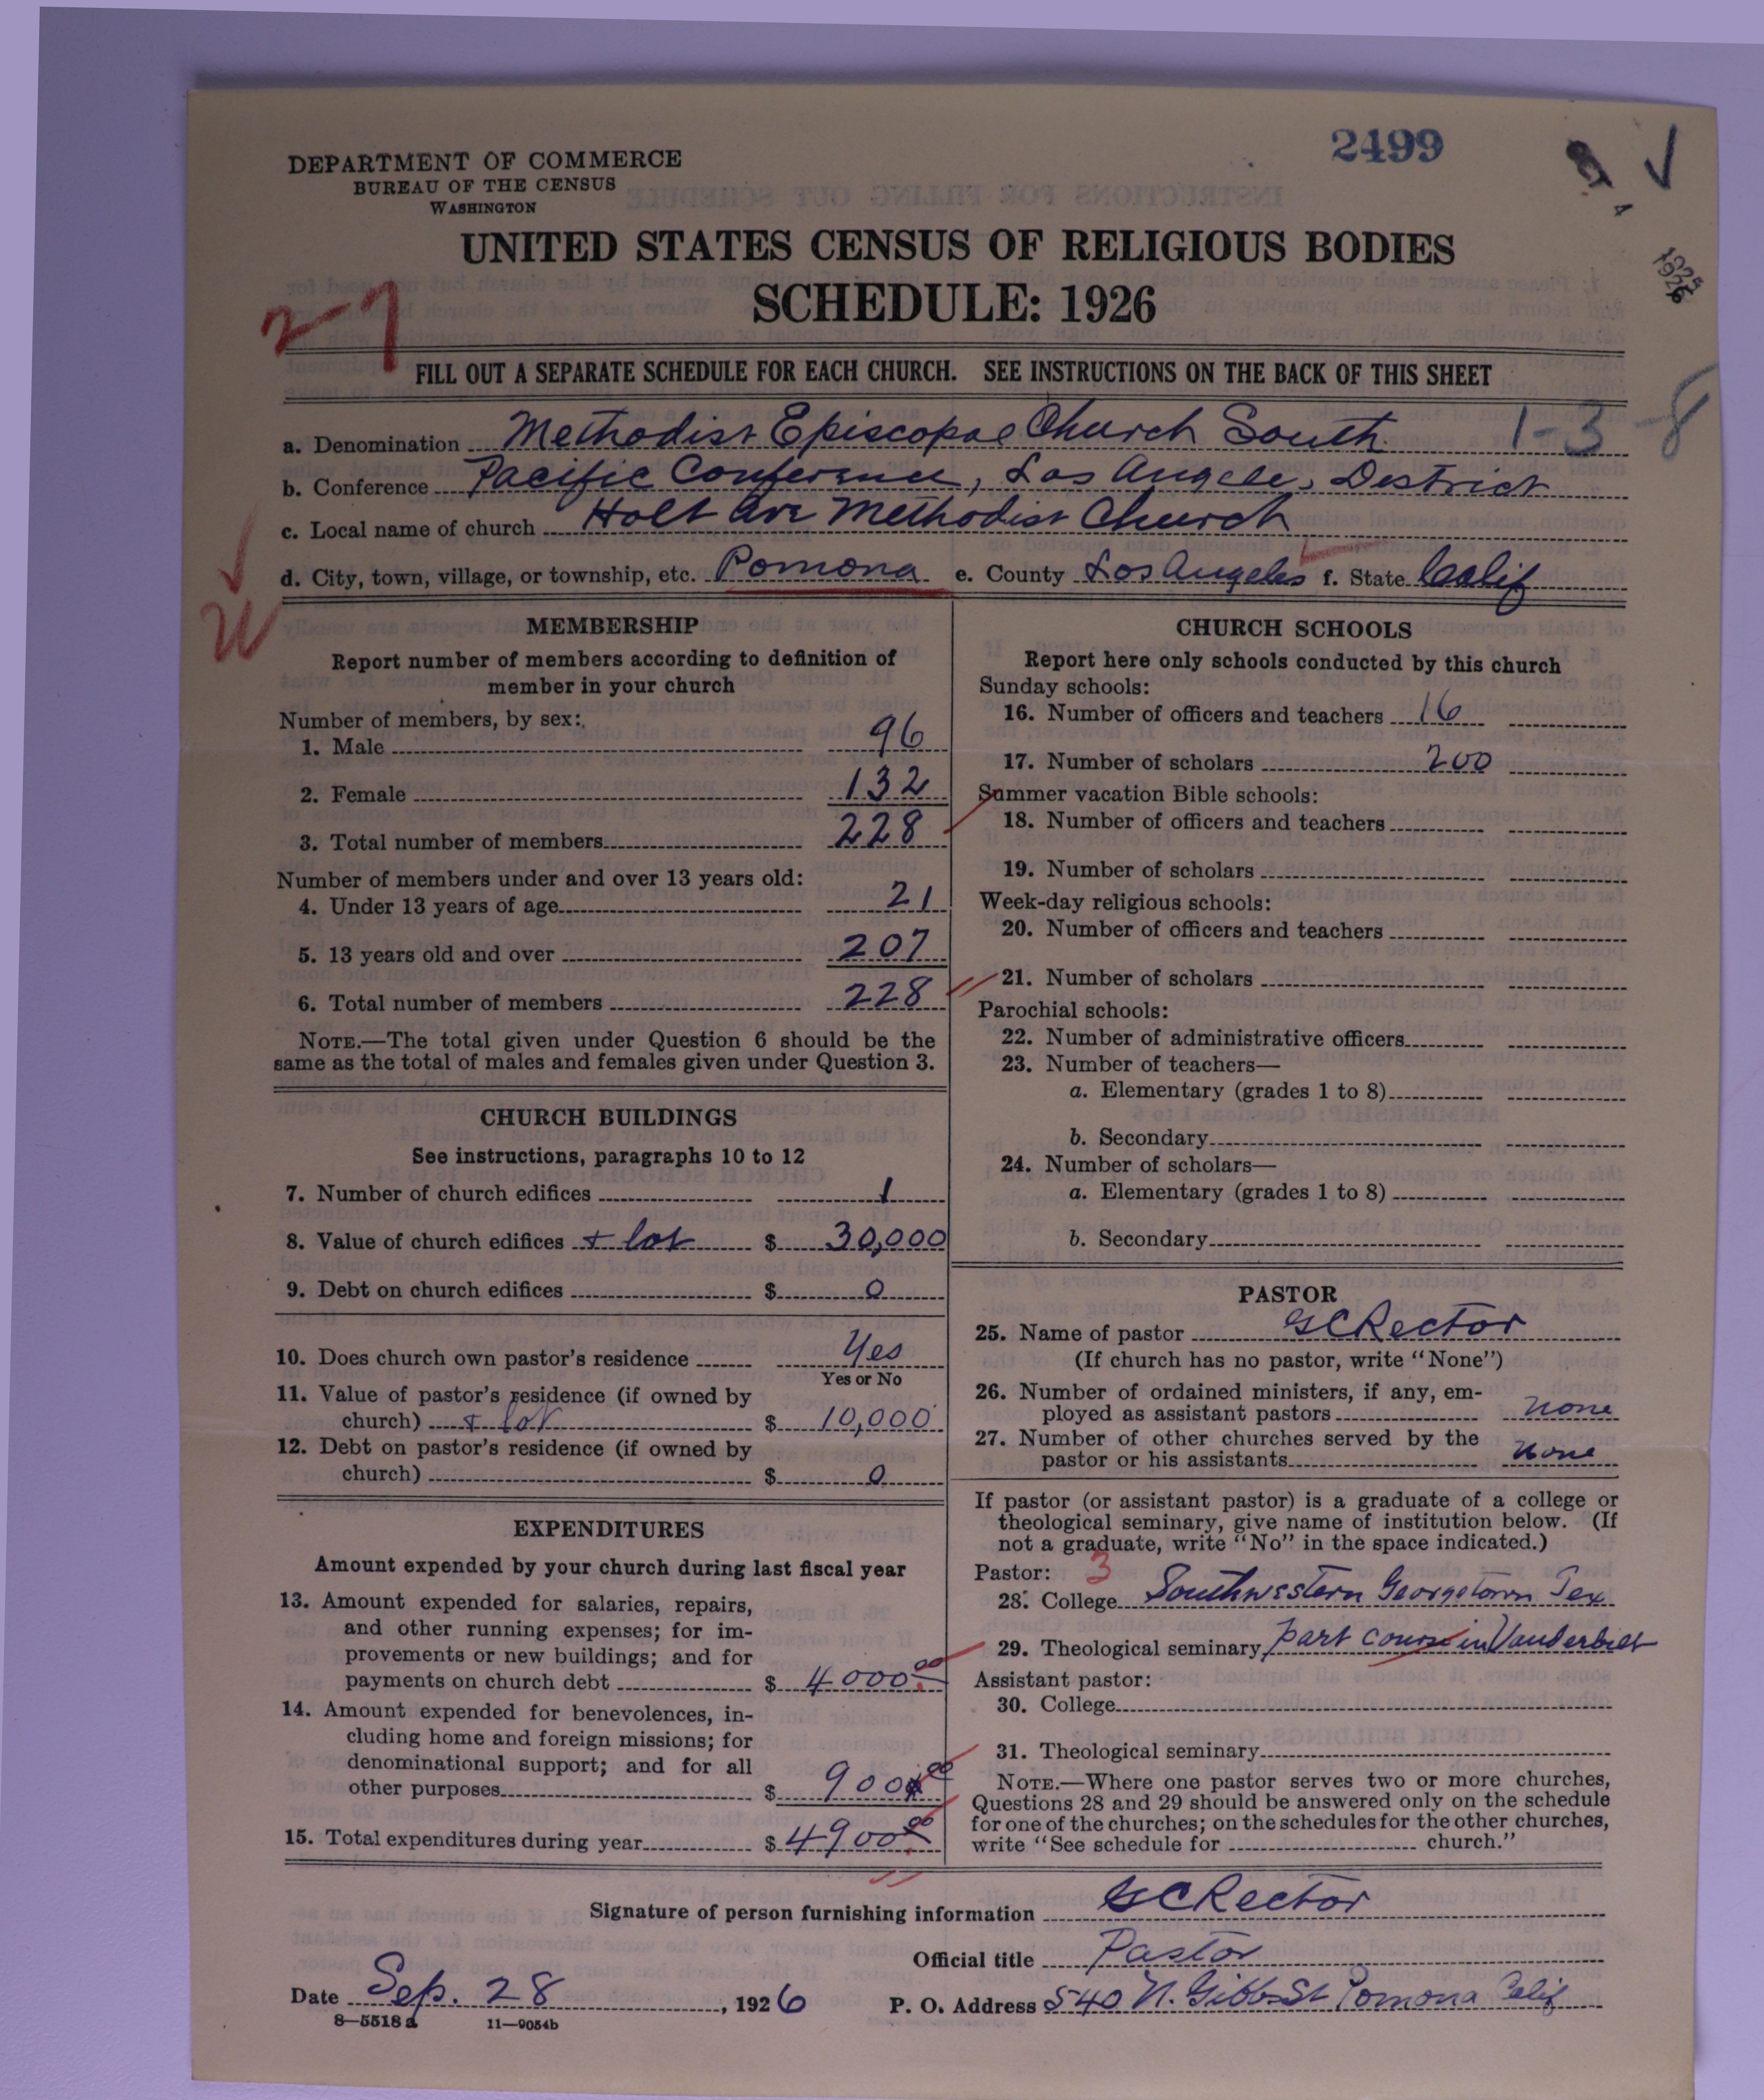 2499
DEPARTMENT OF COMMERCE
BUREAU OF THE CENSUS
WASHINGTON
UNITED STATES CENSUS OF RELIGIOUS BODIES
SCHEDULE: 1926
2-7
FILL OUT A SEPARATE SCHEDULE FOR EACH CHURCH. SEE INSTRUCTIONS ON THE BACK OF THIS SHEET
a. Denomination Methodist Episcopal Church South 1-3-8
b. Conference Pacific Conference, Los Angeles, District
c. Local name of church Holt Ave Methodist Church
d. City, town, village, or township, etc. Pomona e. County Los Angeles f. State Calif
MEMBERSHIP
Report number of members according to definition of
member in your church
Number of members, by sex:
1. Male 96
2. Female 132
3. Total number of members 228
Number of members under and over 13 years old:
4. Under 13 years of age 21
5. 13 years old and over 207
6. Total number of members 228
NOTE.—The total given under Question 6 should be the
same as the total of males and females given under Question 3.
CHURCH BUILDINGS
See instructions, paragraphs 10 to 12
7. Number of church edifices 1
8. Value of church edifices + lot $ 30,000
9. Debt on church edifices $ 0
10. Does church own pastor's residence Yes
Yes or No
11. Value of pastor's residence (if owned by
church) + lot $ 10,000
12. Debt on pastor's residence (if owned by
church) $ 0
EXPENDITURES
Amount expended by your church during last fiscal year
13. Amount expended for salaries, repairs,
and other running expenses; for im-
provements or new buildings; and for
payments on church debt $ 4000.00
14. Amount expended for benevolences, in-
cluding home and foreign missions; for
denominational support; and for all
other purposes $ 900 00
15. Total expenditures during year $ 4900.00
CHURCH SCHOOLS
Report here only schools conducted by this church
Sunday schools:
16. Number of officers and teachers 16
17. Number of scholars 200
Summer vacation Bible schools:
18. Number of officers and teachers
19. Number of scholars
Week-day religious schools:
20. Number of officers and teachers
21. Number of scholars
Parochial schools:
22. Number of administrative officers
23. Number of teachers—
a. Elementary (grades 1 to 8)
b. Secondary
24. Number of scholars—
a. Elementary (grades 1 to 8)
b. Secondary
PASTOR
25. Name of pastor G C Rector
(If church has no pastor, write "None")
26. Number of ordained ministers, if any, em-
ployed as assistant pastors none
27. Number of other churches served by the
pastor or his assistants none
If pastor (or assistant pastor) is a graduate of a college or
theological seminary, give name of institution below. (If
not a graduate, write "No" in the space indicated.)
Pastor: 3
28. College Southwestern Georgetown Tex
29. Theological seminary part course in Vanderbilt
Assistant pastor:
30. College
31. Theological seminary
NOTE.—Where one pastor serves two or more churches,
Questions 28 and 29 should be answered only on the schedule
for one of the churches; on the schedules for the other churches,
write "See schedule for church."
Signature of person furnishing information G C Rector
Official title Pastor
Date Sep. 28, 1926 P. O. Address 540 N. Gibbs St Pomona Calif
8—5518a 11—9054b